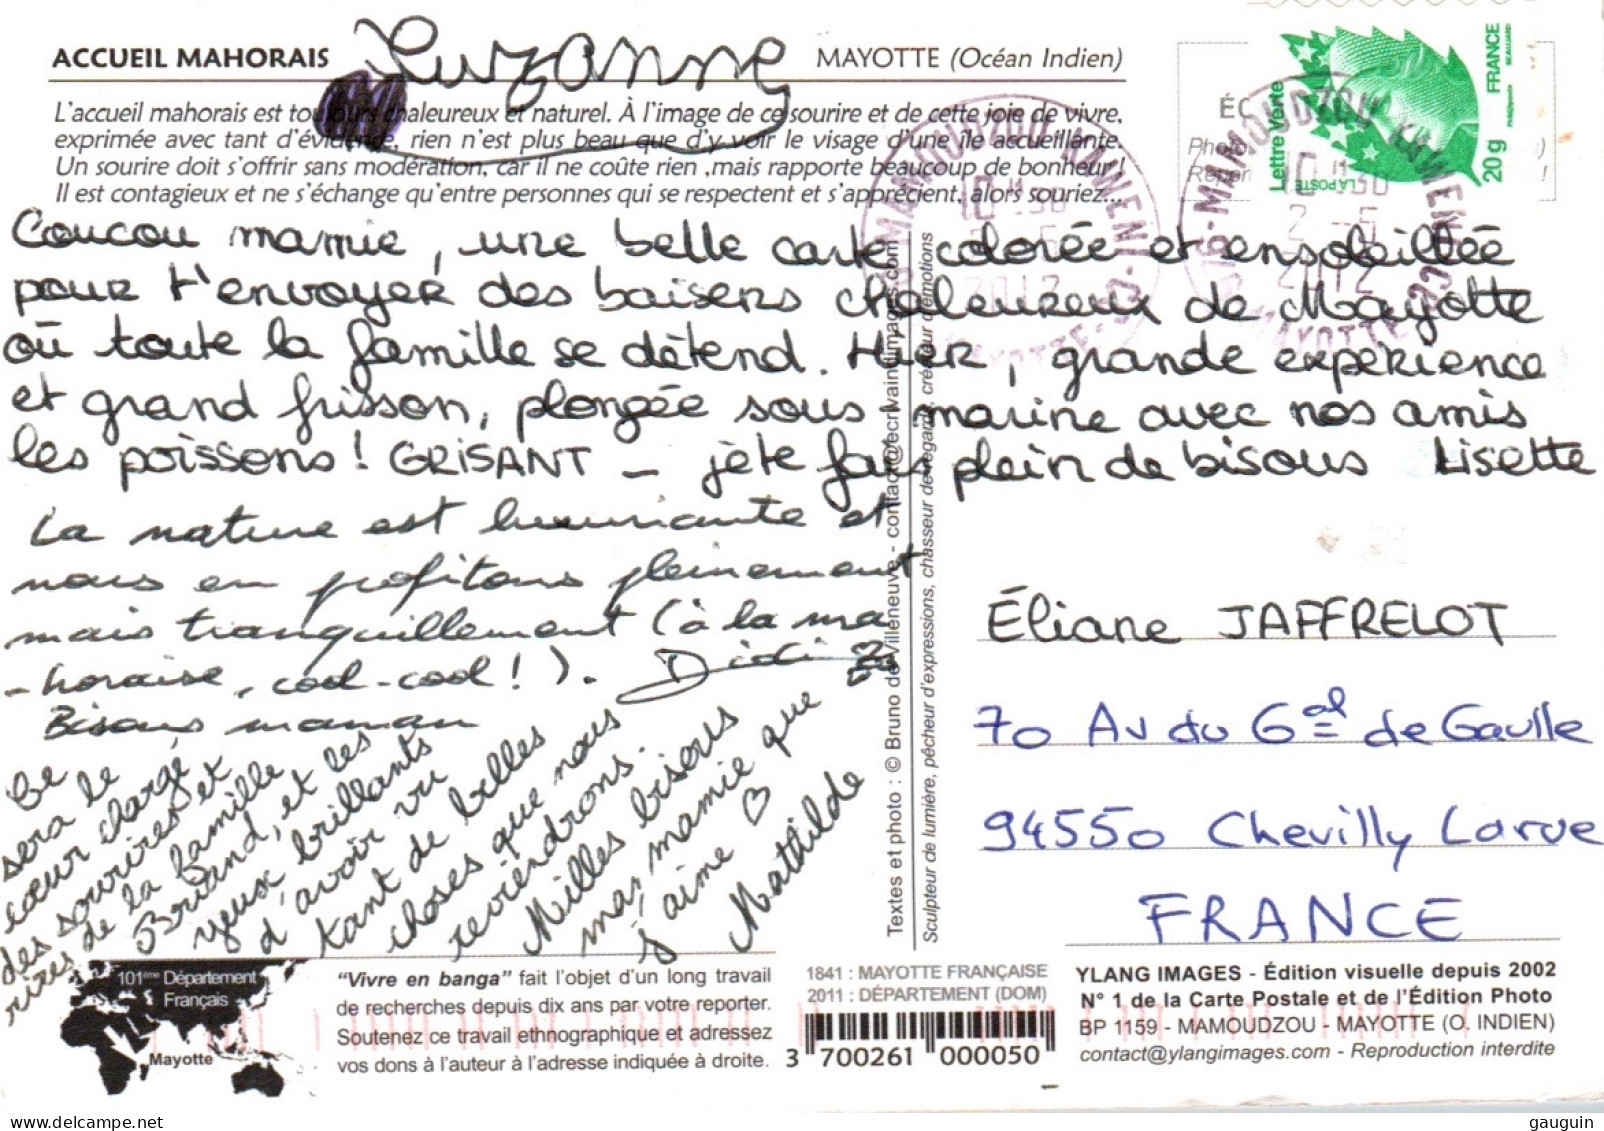 ACCUEIL MAHORAIS
Suzanne
MAYOTTE (Océan Indien)
L'accueil mahorais est toujours chaleureux et naturel. À l'image de ce sourire et de cette joie de vivre,
exprimée avec tant d'évidence, rien n'est plus beau que d'y voir le visage d'une île accueillante.
Un sourire doit s'offrir sans modération, car il ne coûte rien ,mais rapporte beaucoup de bonheur !
Il est contagieux et ne s'échange qu'entre personnes qui se respectent et s'apprécient, alors souriez...
Lettre Verte
LA POSTE
20g FRANCE
MAMOUDZOU KAWENI CC
10 H 30
2 - 5
2012
MAYOTTE
MAMOUDZOU KAWENI CC
10 H 30
2 - 5
2012
MAYOTTE
Coucou mamie, une belle carte colorée et ensoleillée
pour t'envoyer des baisers chaleureux de Mayotte
où toute la famille se détend. Hier, grande expérience
et grand frisson, plongée sous marine avec nos amis
les poissons ! GRISANT _ je te fais plein de bisous Lisette
La nature est luxuriante et
nous en profitons pleinement
mais tranquillement (à la ma
-horaise, cool-cool !). Didi
Bisous maman
Ce
sera le
cœur chargé
des sourires et
rires de la famille
Briand, et les
yeux brillants
d'avoir vu
tant de belles
choses que nous
reviendrons.
Milles bisous
ma mamie que
j'aime ♡
Mathilde
Textes et photo : © Bruno de Villeneuve - contact@ecrivaindimages.com
Sculpteur de lumière, pêcheur d'expressions, chasseur de regards, créateur d'émotions
Éliane JAFFRELOT
70 Av du Gal de Gaulle
94550 Chevilly Larue
FRANCE
101ème Département
Français
Mayotte
"Vivre en banga" fait l'objet d'un long travail
de recherches depuis dix ans par votre reporter.
Soutenez ce travail ethnographique et adressez
vos dons à l'auteur à l'adresse indiquée à droite.
1841 : MAYOTTE FRANÇAISE
2011 : DÉPARTEMENT (DOM)
3 700261 000050
YLANG IMAGES - Édition visuelle depuis 2002
N° 1 de la Carte Postale et de l'Édition Photo
BP 1159 - MAMOUDZOU - MAYOTTE (O. INDIEN)
contact@ylangimages.com - Reproduction interdite
gauguin